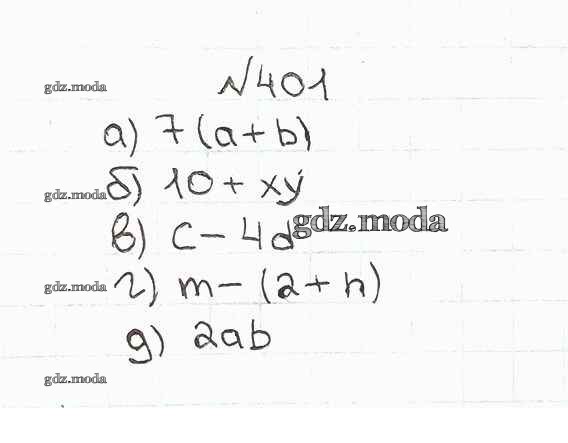 №401
gdz.moda
а) 7(a+b)
б) 10+xy
gdz.moda
в) c-4d
gdz.moda
г) m-(2+n)
gdz.moda
д) 2ab
gdz.moda